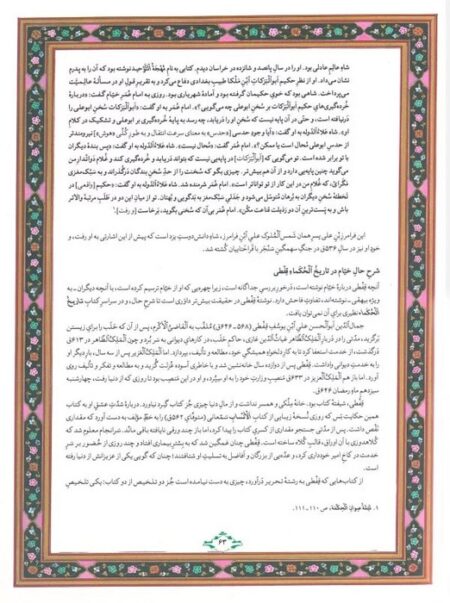 شاهِ عالِمِ عادلی بود. او را در سالِ پانصد و شانزده در خراسان دیدم. کتابی به نام مُهْجَةُ التَّوْحید نوشته بود که آن را به پدرم
نشان می‌داد. او از نظرِ حکیم ابوالبَرَکات اَبْنِ مَلْکا طبیبِ بغدادی دفاع می‌کرد و به تقریرِ قولِ او در مسألهٔ عالمیت
می‌پرداخت. شاهی بود که خویِ حکیمان گرفته بود و آمادهٔ شهریاری بود. روزی به امام عُمَرِ خَیّام گفت: «دربارهٔ
خُرده‌گیری‌های حکیم ابوالْبَرَکات بر سُخنِ ابوعلی چه می‌گویی؟». امام عُمَر به او گفت: «ابوالْبَرَکات سُخنِ ابوعلی را
درنیافته است، و حتّی در آن پایه نیست که سُخنِ او را دریابد، چه رسد به پایهٔ خُرده‌گیری بر ابوعلی و تشکیک در کلامِ
او». شاه عَلاءُالدَّوله به او گفت: «آیا وجودِ حدسی [حدس به معنای سرعتِ انتقال و به طورِ کُلّی «هوش»] نیرومندتر
از حدسِ ابوعلی مُحال است یا ممکن؟». امام عُمَر گفت: «مُحال نیست». شاه عَلاءُالدَّوله به او گفت: «پس بندهٔ دیگران
با تو برابر شده است. تو می‌گویی که [ابوالْبَرَکات] در پایه‌یی نیست که بتواند دریابد و خُرده‌گیری کند و غُلامِ
می‌گوید چنین پایه‌یی دارد و از آن هم بیش‌تر. چیزی بگو که سُخنت را از حدِّ سُخنِ بندگان درگُذراند و به سَبُک‌مغزی
نگرای، که غُلامِ من در این کار از تو تواناتر است». امام عُمَر شرمنده شد. شاه عَلاءُالدَّوله به او گفت: «حکیم [واقعی] در
تخطئهٔ سُخنِ دیگران به بُرهان مُتوسّل می‌شود و جَدَلیِ سَبُک‌مغز به بدگویی و بُهتان. تو از میانِ این دو در طلبِ مرتبهٔ والاتر
باش و به پَست‌ترینِ آن دو رذیلت قناعت مَکُن». امام عُمَر بی‌آن که سُخنی بگوید، برخاست [و رفت].¹
این فرامرز بْنِ علی پسرِ همان شَمس‌ُالمُلوک علی اَبْنِ فرامرز، شاهِ دانش‌دوستِ یزد است که پیش از این اشارتی به او رفت، و
خودِ او نیز در سالِ ۵۳۶ق در جنگِ سهمگینِ سَنْجَر با قَراخَتاییان کُشته شد.
شرحِ حالِ خیّام در تاریخُ الْحُکَماءِ قِفْطی
آنچه قِفْطی دربارهٔ خیّام نوشته است، درخورِ بررسیِ جداگانه است، زیرا چهره‌یی که او از خیّام ترسیم کرده است، با آنچه دیگران ـ به
ویژه بیهقی ـ نوشته‌اند، تفاوتِ فاحش دارد. نوشتهٔ قِفْطی در حقیقت بیش‌تر داوَری است تا شرحِ حال، و در سراسرِ کتابِ تاریخُ
الْحُکَماء نظیری برای آن نمی‌توان یافت.
جمال‌ُالدّین ابوالْحسن علی اَبْنِ یوسفِ قِفْطی (۵۶۸ ـ ۶۴۶ق) مُلقَّب به القاضی‌ُالْاَکرَم، پس از آن که حَلَب را برای زیستن
برگُزید، مدّتی را در دربارِ الظّاهر غیاثُ‌الدّین غازی، حاکمِ حَلَب، در کارهای دیوانی به سَر بُرد و چون الْمَلِکُ‌الظّاهر در ۶۱۳ق
درگُذشت، از خدمت استعفا کرد تا به کارِ دلخواهِ همیشگیِ خود، مطالعه و تألیف، بپردازد. امّا الْمَلِکُ‌الْعَزیز پس از سه سال، بارِ دیگر او
را به خدمتِ دیوانی واداشت. قِفْطی پس از دوازده سال خانه‌نشین شد و با خاطری آسوده عُزلت گُزید و به مطالعه و تفکّر و تألیف روی
آورد. امّا باز هم الْمَلِکُ‌الْعَزیز در ۶۳۳ق منصبِ وزارتِ خود را به او سپُرد، و او در این منصب بود تا روزی که از دنیا رفت، چهارشنبه
سیزدهمِ ماهِ رمضانِ ۶۴۶ق.
قِفْطی، شیفتهٔ کتاب بود. خانهٔ مِلکی و همسر نداشت و از مالِ دنیا جز کتاب چیزی گِرد نیاورد. دربارهٔ شدّتِ عشقِ او به کتاب
همین حکایت بَس که روزی نُسخهٔ زیبایی از کتابِ الْاَنْسابِ سَمْعانی (متوفّای ۵۶۲ق) را به خطِّ مؤلّف به دست آورد که مقداری
نَقْص داشت. پس از مدّتی جستجو مقداری از کسریِ کتاب را پیدا کرد، امّا باز چند ورقی نایافته باقی ماند. سَرانجام معلوم شد که
کُلاهدوزی با آن اوراق، قالبِ کُلاه ساخته است. قِفْطی چنان غمگین شد که به بسترِ بیماری افتاد و چند روزی از حُضور بر سَرِ
خدمت در کاخِ امیر خودداری کرد، و عدّه‌یی از بزرگان و اَفاضل به تسلیتِ او شتافتند؛ چنان که گویی یکی از عزیزانش از دنیا رفته
است.
از کتاب‌هایی که قِفْطی به رشتهٔ تحریر درآورد، چیزی به دست نیامده است جز دو تلخیص از دو کتاب: یکی تلخیصِ
۱. تَتِمَّةُ صِوانُ الْحِکْمَة، ص ۱۱۰ ـ ۱۱۱.
۶۳